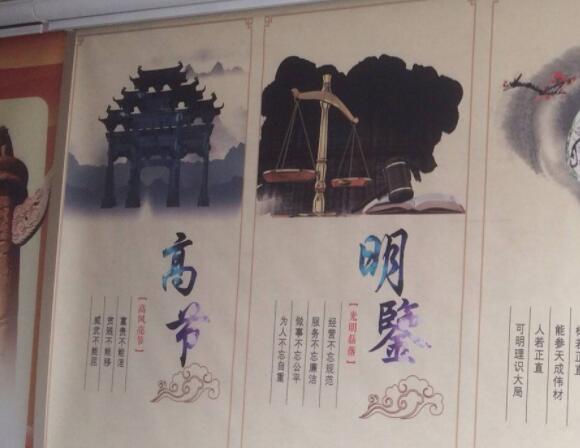 高节
【高风亮节】
富贵不能淫
贫贱不能移
威武不能屈
明鉴
【光明磊落】
经营不忘规范
服务不忘廉洁
做事不忘公平
为人不忘自重
能参天成伟材
人若正直
可明理识大局